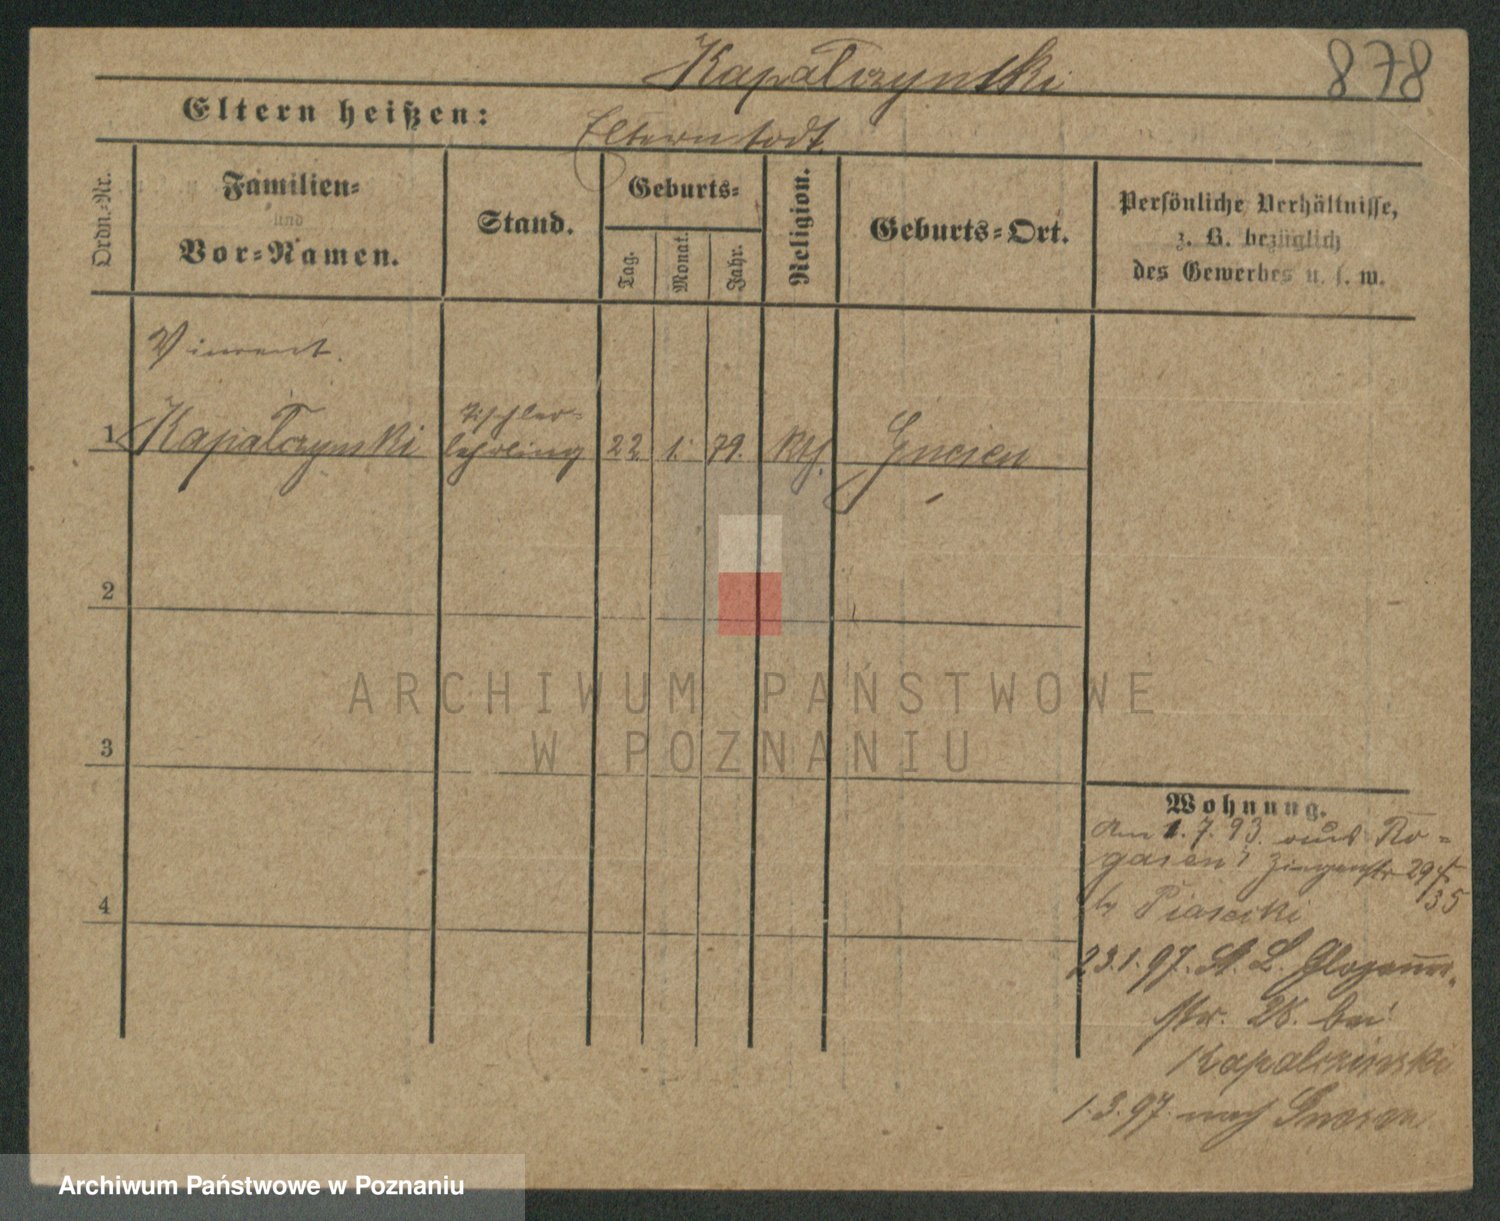 Kapałczynski
878
Eltern heißen:
Eltern todt.
Ordn.-Nr.
Familien-
und
Vor-Namen.
Stand.
Geburts-
Tag.
Monat.
Jahr.
Religion.
Geburts-Ort.
Persönliche Verhältnisse,
z. B. bezüglich
des Gewerbes u. s. w.
Vincent.
1 Kapałczynski
Tischler-
lehrling
22. 1. 79. kth.
2
3
4
Wohnung.
Am 1.7.93. aus Ro-
gasen
Piasecki
23.1.97. St. L. Glogauer-
str. 28. bei
Kapalczinski
1.3.97. nach
ARCHIWUM PAŃSTWOWE
W POZNANIU
Archiwum Państwowe w Poznaniu